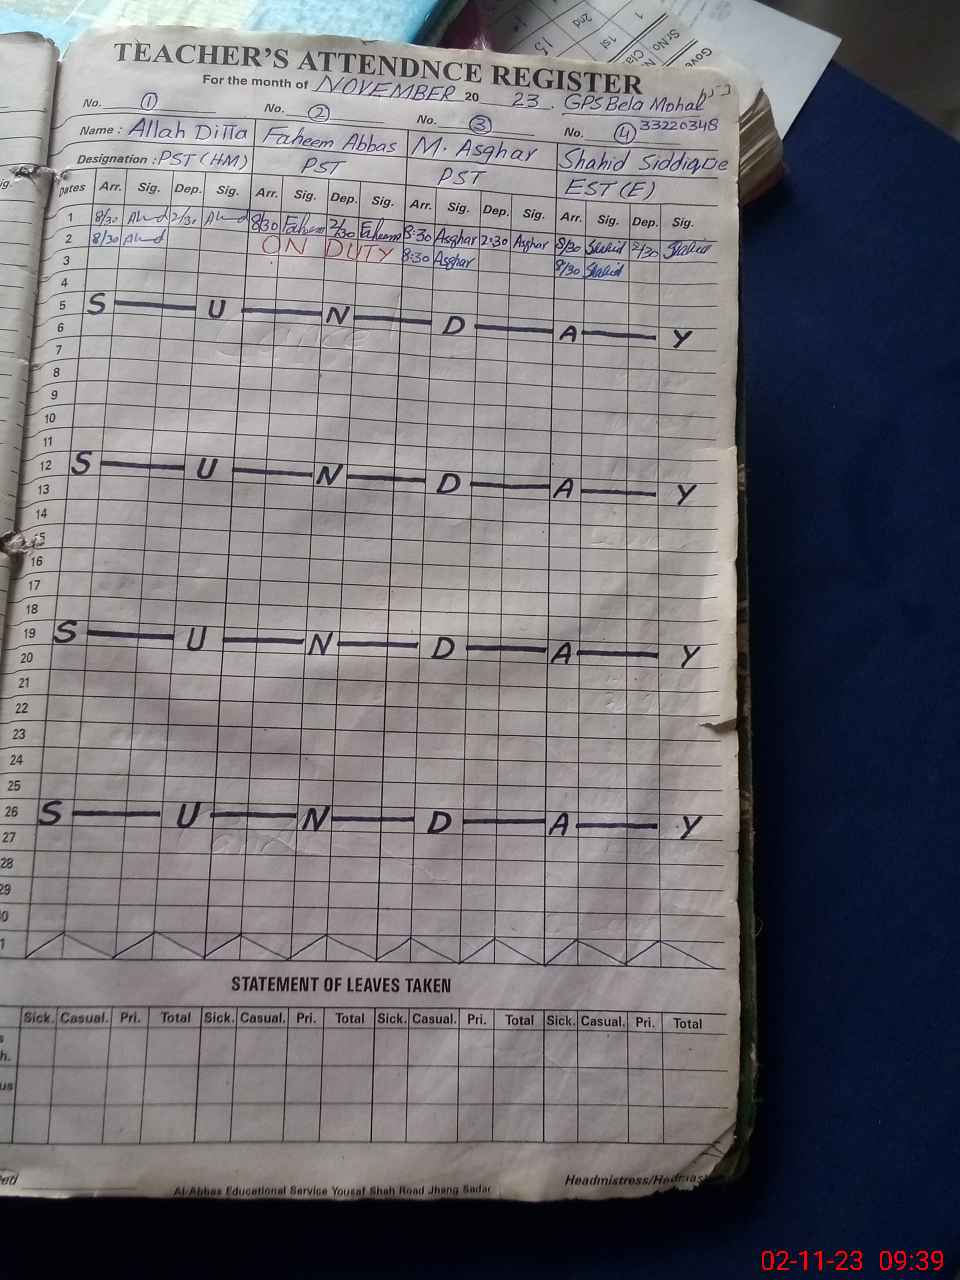 TEACHER'S ATTENDNCE REGISTER
For the month of NOVEMBER 20 23. GPS Bela Mohal
No. 1 No. 2 No. 3 No. 4 33220348
Name : Allah Ditta Faheem Abbas M. Asghar Shahid Siddique
Designation : PST (HM) PST PST EST (E)
Dates Arr. Sig. Dep. Sig. Arr. Sig. Dep. Sig. Arr. Sig. Dep. Sig. Arr. Sig. Dep. Sig.
1 8/30 2/30 8/30 Faheem 2/30 Faheem 8:30 Asghar 2:30 Asghar 8/30 Shahid 2/30 Shahid
2 8/30 ON DUTY 8:30 Asghar 8/30 Shahid
3
4
5 S U N D A Y
6
7
8
9
10
11
12 S U N D A Y
13
14
15
16
17
18
19 S U N D A Y
20
21
22
23
24
25
26 S U N D A Y
27
28
29
0
1
STATEMENT OF LEAVES TAKEN
Sick. Casual. Pri. Total Sick. Casual. Pri. Total Sick. Casual. Pri. Total Sick. Casual. Pri. Total
h.
us
Headmistress/Headmas
Al-Abbas Educational Service Yousaf Shah Road Jhang Sadar
Sr.No
1
1st
2nd
15
02-11-23 09:39